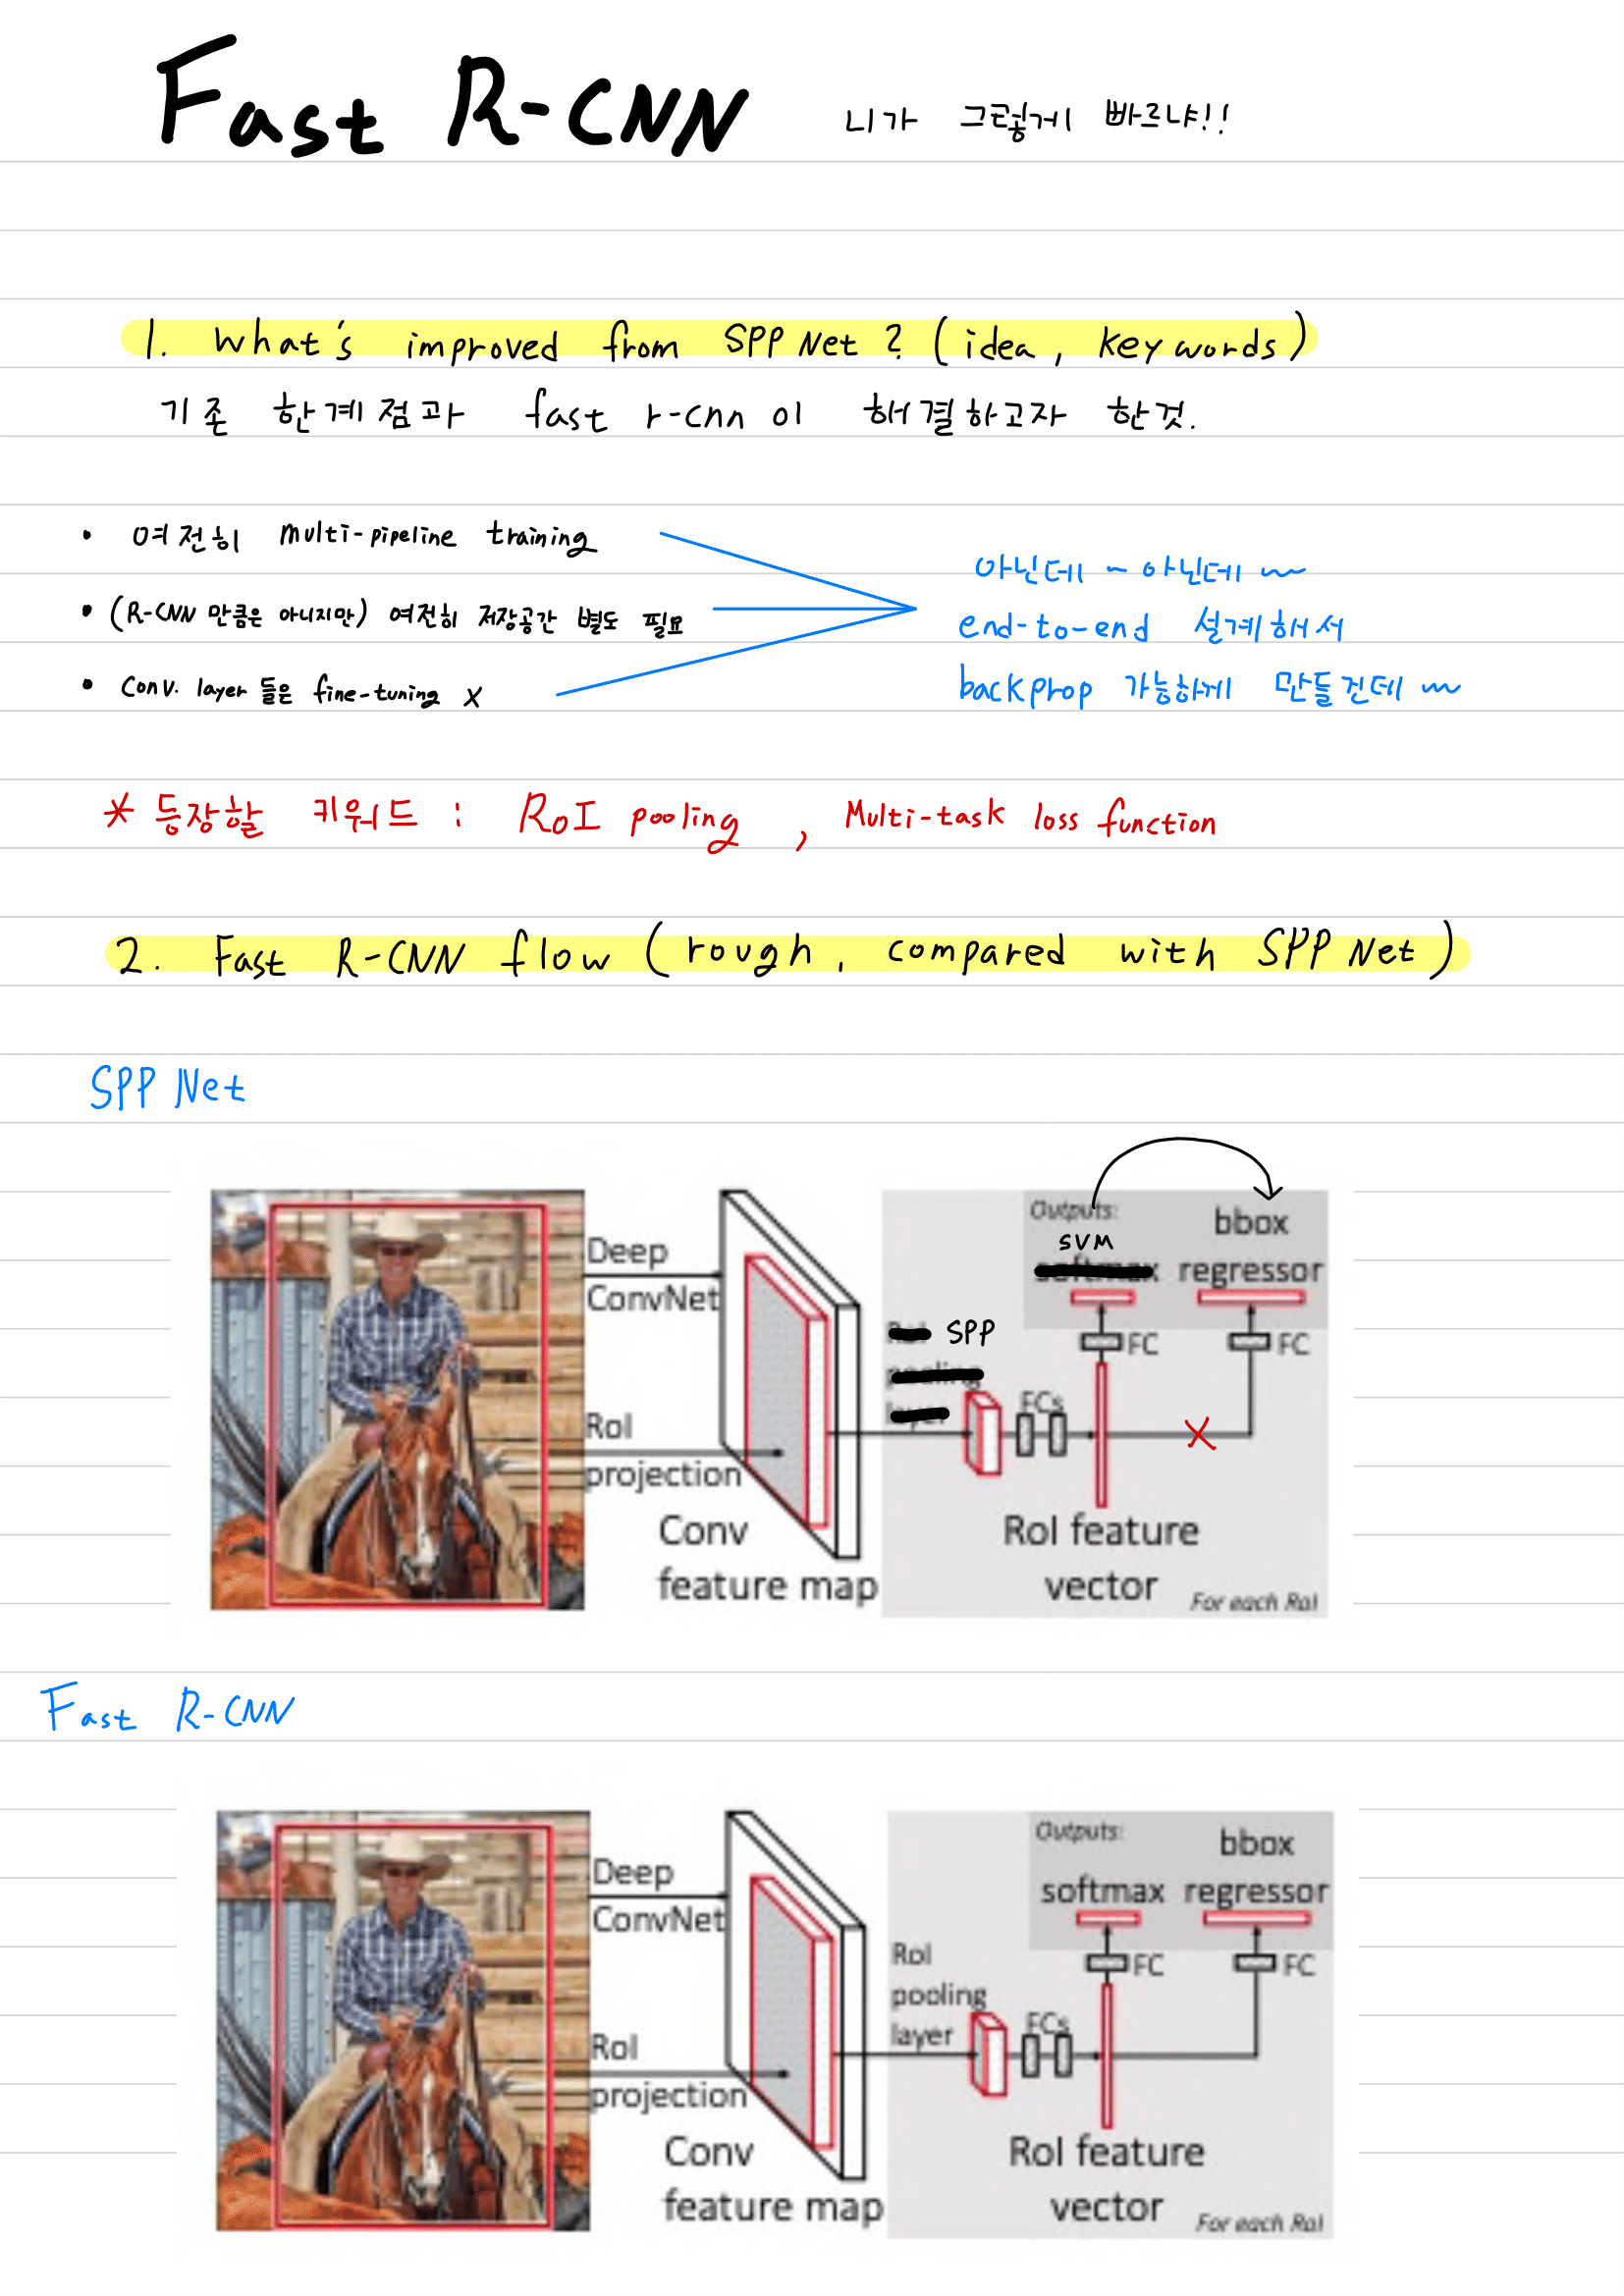 Fast R-CNN 니가 그렇게 빠르냐!!
1. What's improved from SPP Net? (idea, keywords)
기존 한계점과 fast r-cnn이 해결하고자 한것.
• 여전히 multi-pipeline training
• (R-CNN 만큼은 아니지만) 여전히 저장공간 별도 필요
• Conv. layer 들은 fine-tuning x
아닌데 ~ 아닌데 ~
end-to-end 설계해서
backprop 가능하게 만들건데 ~
* 등장할 키워드 : RoI pooling , Multi-task loss function
2. Fast R-CNN flow (rough, compared with SPP Net)
SPP Net
Deep
ConvNet
RoI
projection
Conv
feature map
SPP
FCs
Outputs:
SVM
bbox
regressor
FC
FC
X
RoI feature
vector
For each RoI
Fast R-CNN
Deep
ConvNet
RoI
projection
Conv
feature map
RoI
pooling
layer
FCs
Outputs:
softmax
bbox
regressor
FC
FC
RoI feature
vector
For each RoI